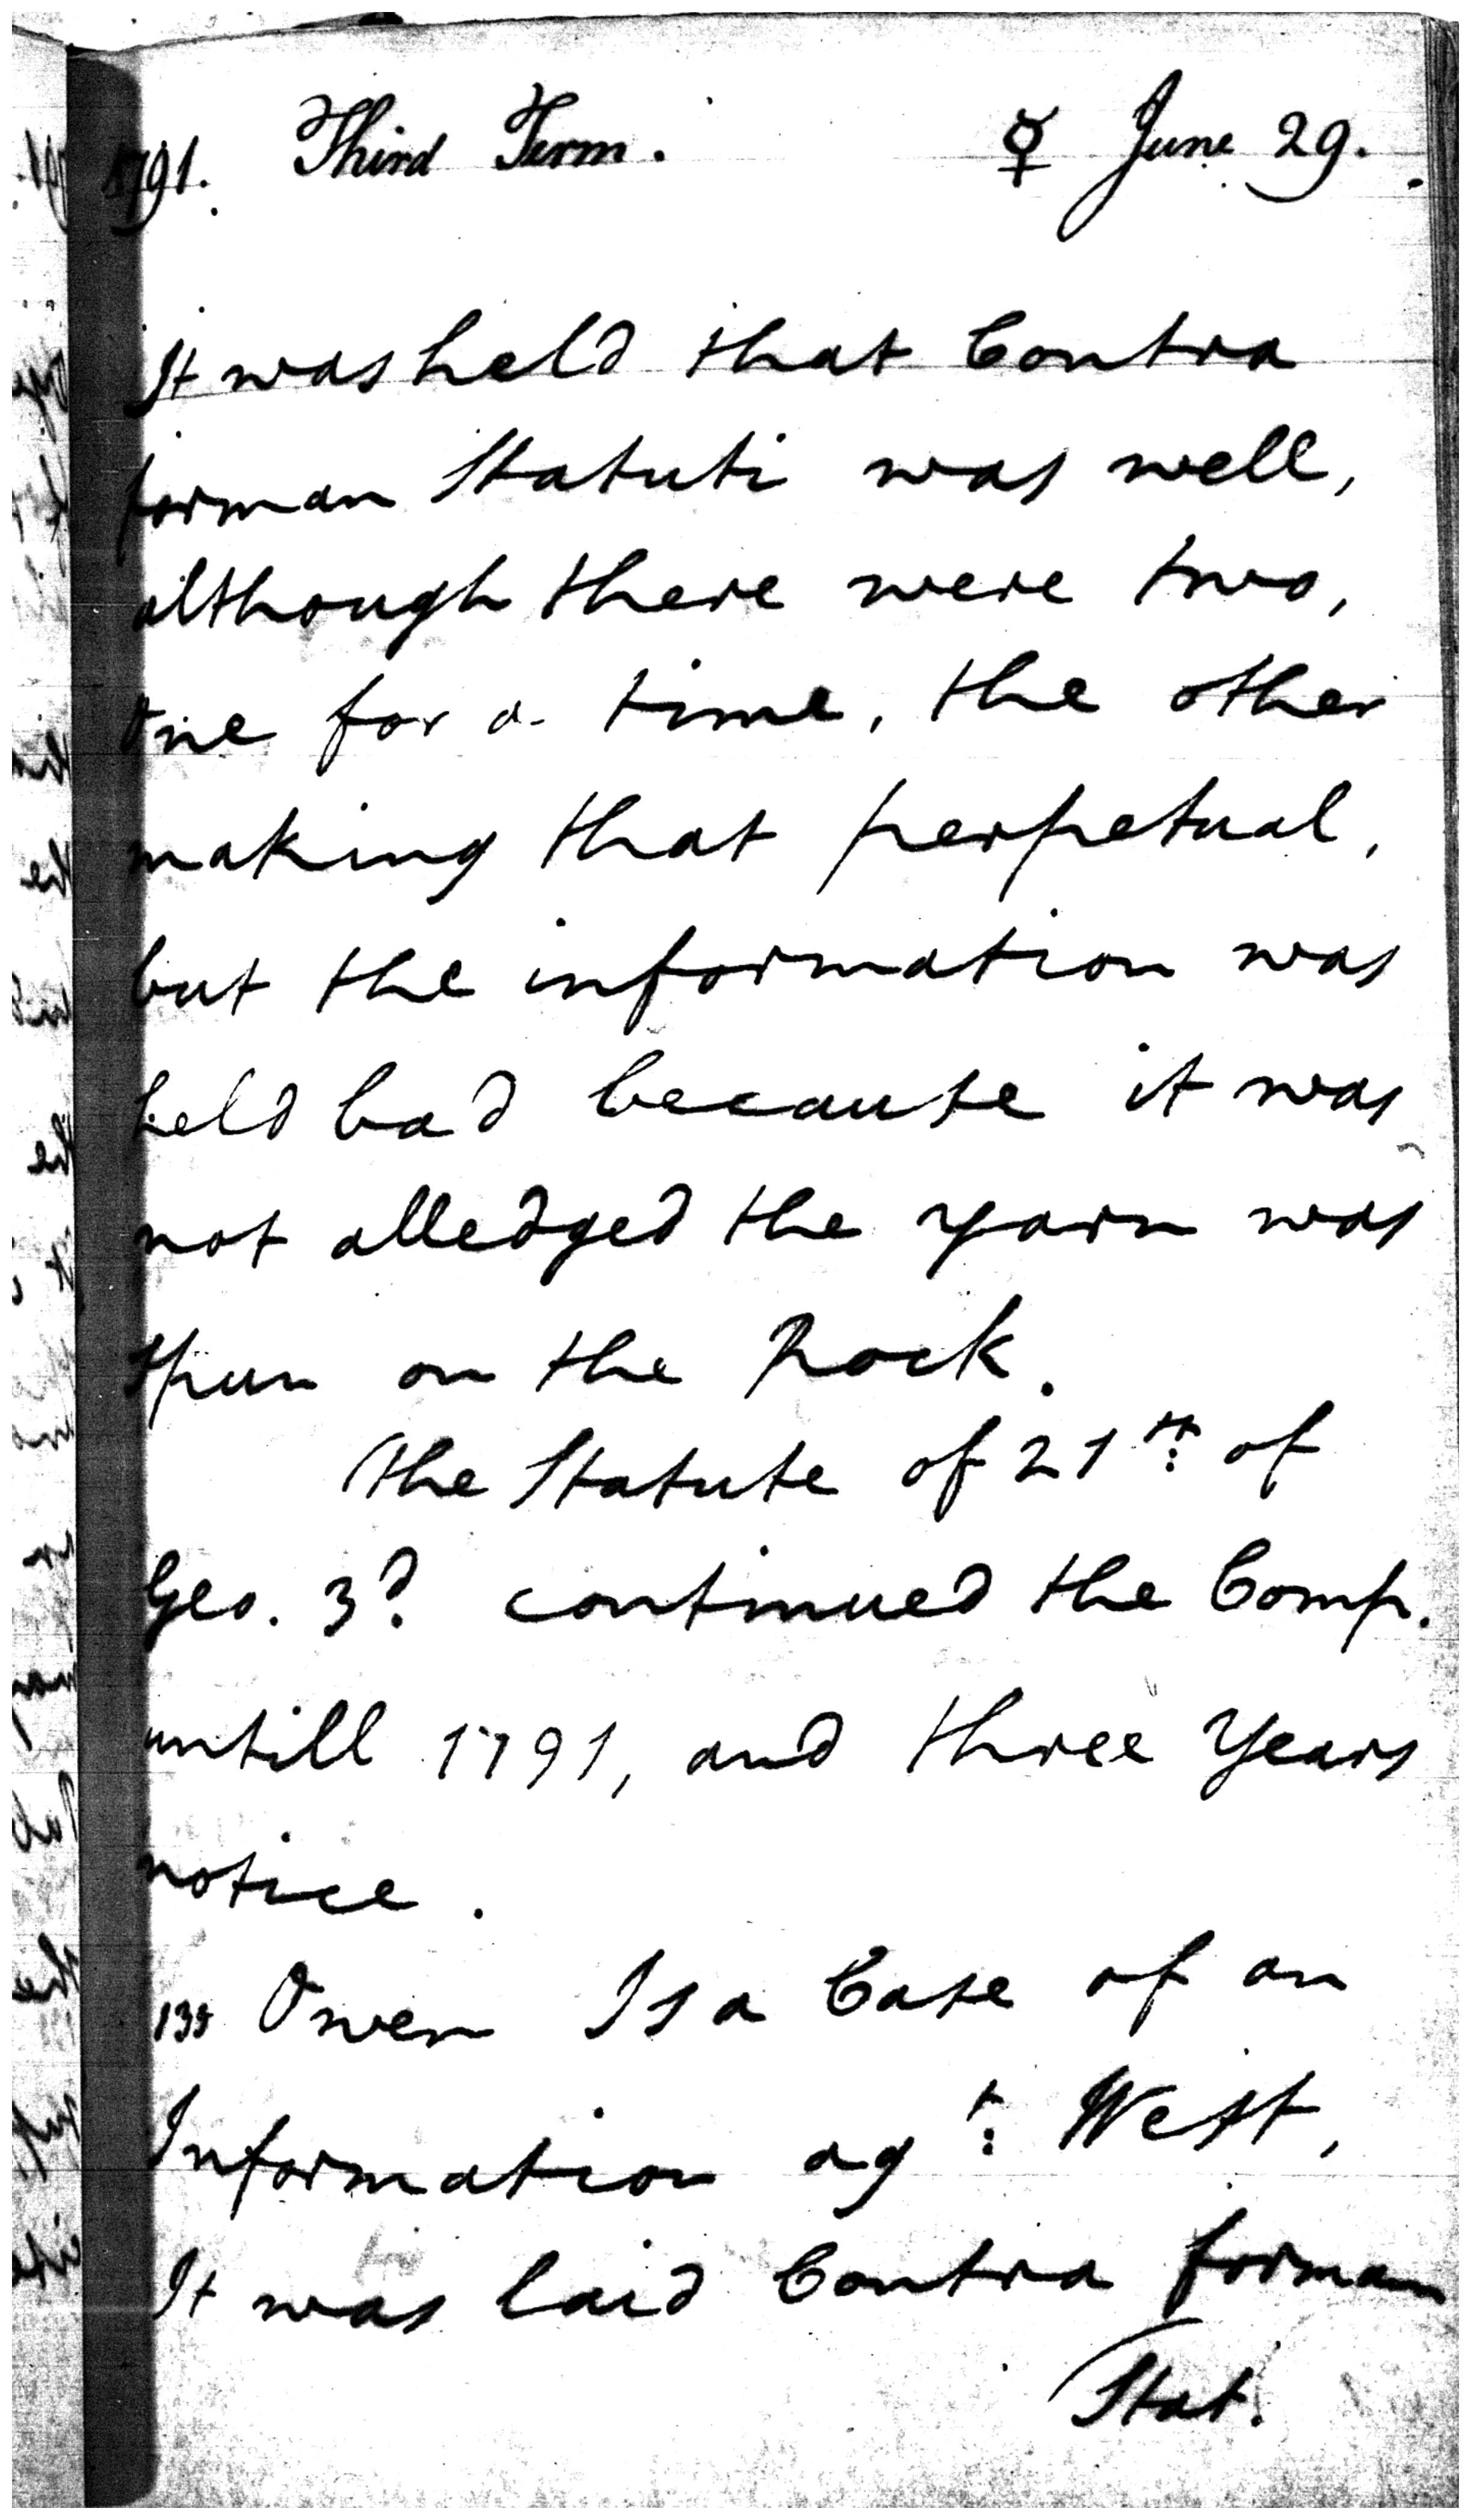 1791. Third Term. ☿ June 29.
It was held that Contra
forman Statuti was well,
although there were two,
One for a time, the other
making that perpetual,
but the information was
held bad because it was
not alledged the yarn was
spun on the Rock.
The Statute of 21st: of
Geo. 3d. continued the Comp.
untill 1791, and three Years
notice.
Owen Is a Case of an
Information agt: West,
It was laid Contra forman
Stat.